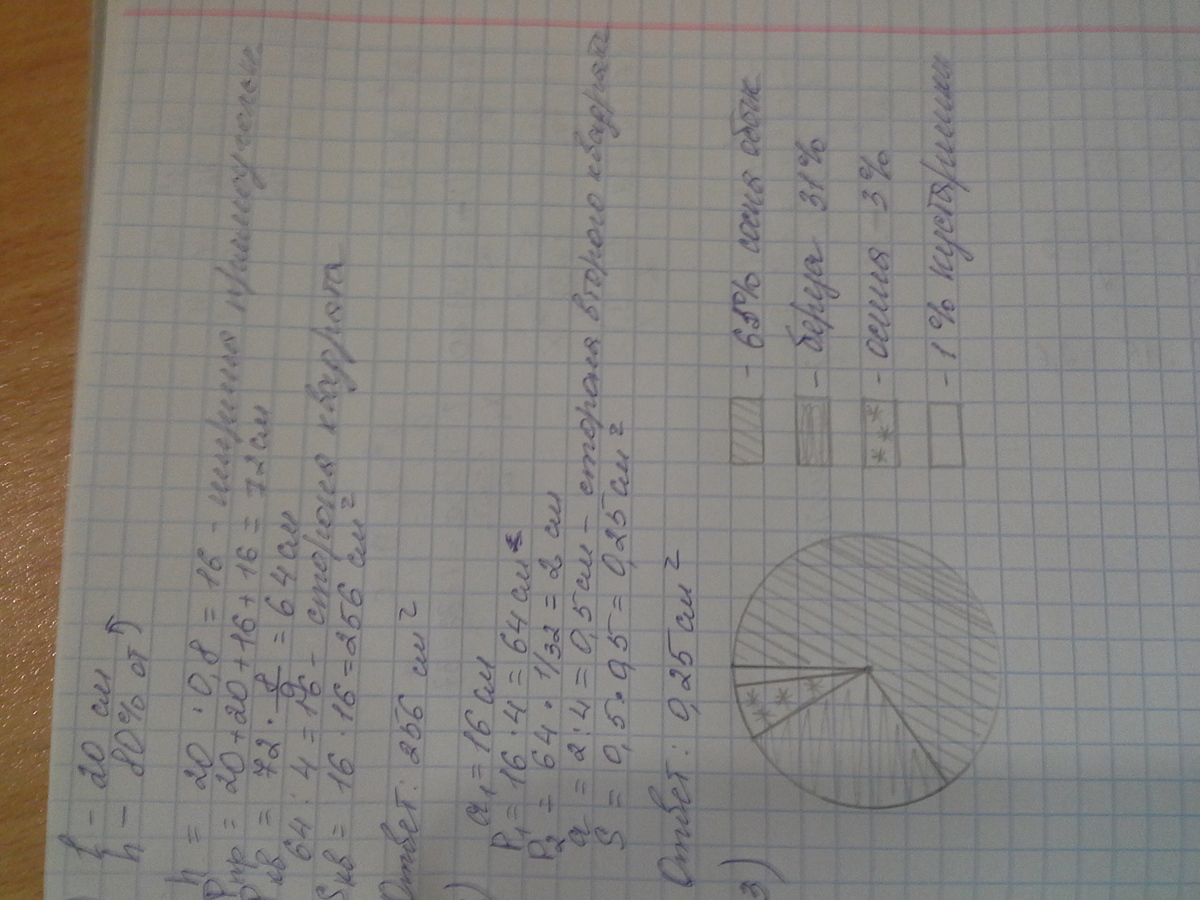 ℓ – 20 см
h – 80% от ↑
h = 20 · 0,8 = 16 - ширина прямоугольн
Pпр = 20+20+16+16 = 72 см
Pкв = 72 · 8/9 = 64 см
64 : 4 = 16 - сторона квадрата
Sкв = 16 · 16 = 256 см²
Ответ: 256 см²
)
a₁ = 16 см
P₁ = 16 · 4 = 64 см
P₂ = 64 · 1/32 = 2 см
a = 2 : 4 = 0,5 см – сторона второго квадрата
S = 0,5 · 0,5 = 0,25 см²
Ответ: 0,25 см²
3)
- 65% сосна обык
- берёза 31%
- осина 3%
- 1% кустарники